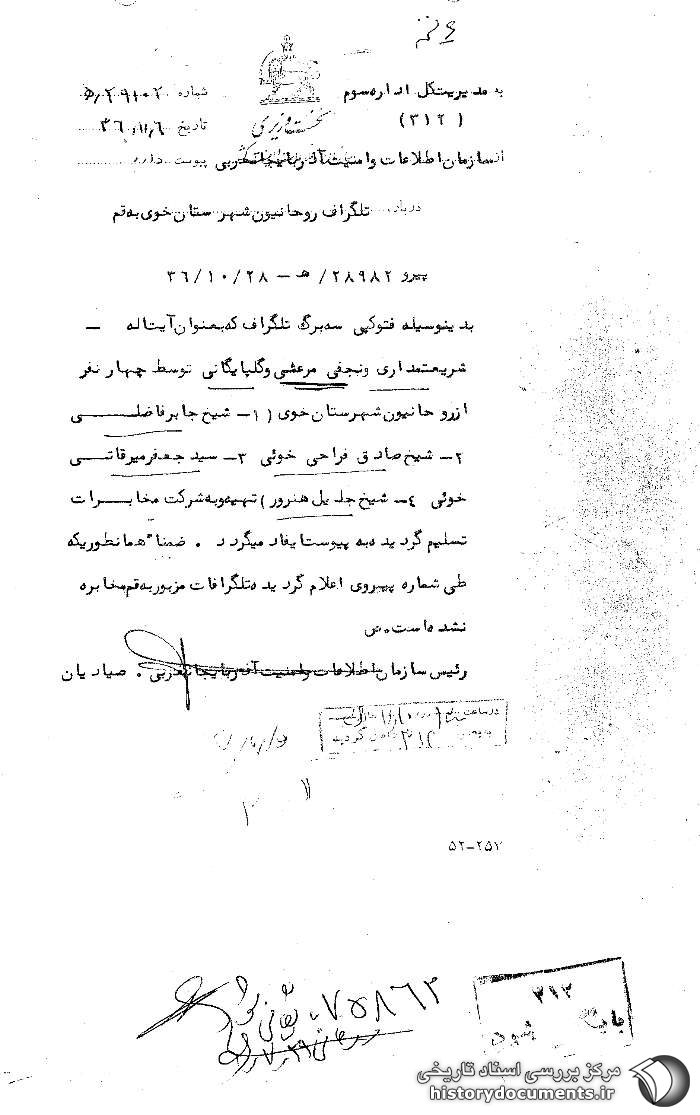 به مدیریتکل اداره سوم
(۳۱۲)
شماره ۲۹۱۰۲/ه
نخست وزیری
تاریخ ۳۶/۱۱/۶
از سازمان اطلاعات وامنیت آذربایجانغربی
پیوست دارد
درباره تلگراف روحانیون شهرستان خوی به قم
پیرو ۲۸۹۸۲/ ه – ۳۶/۱۰/۲۸
بدینوسیله فتوکپی سه برگ تلگراف که بعنوان آیت اله –
شریعتمداری ونجفی مرعشی وگلپایگانی توسط چهار نفر
ازرو حانیون شهرستان خوی (۱– شیخ جابر فاضلی
۲– شیخ صادق فراحی خوئی ۳– سید جعفر میرقائمی
خوئی ۴– شیخ جلیل هنرور) تهیه و به شرکت مخابرات
تسلیم گردیده به پیوست ایفاد میگردد . ضمنا" همانطوریکه
طی شماره پیروی اعلام گردیده تلگرافات مزبور به قم مخابره
نشده است. ص
رئیس سازمان اطلاعات وامنیت آذربایجانغربی . صیادیان
در ساعت
۳۱۲ گردید
۵۲–۲۵۷
۳۱۲
۷۵۸۶۳
مرکز بررسی اسناد تاریخی
historydocuments.ir